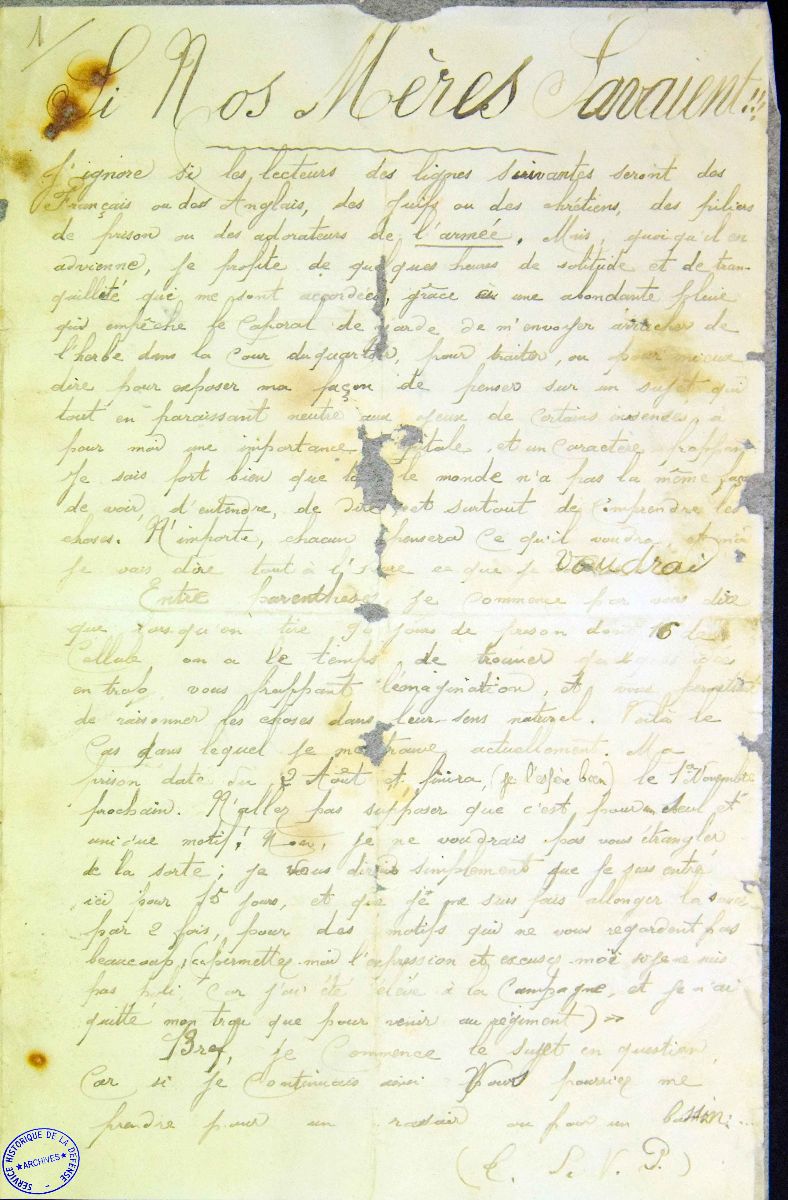 1
Si Nos Mères Savaient!!!
J'ignore si les lecteurs des lignes suivantes seront des
Français ou des Anglais, des Juifs ou des chrétiens, des piliers
de prison ou des adorateurs de l'armée. Mais, quoiqu'il en
advienne, je profite de quelques heures de solitude et de tran-
quilleté qui me sont accordées, grâce à une abondante pluie
qui empêche le Caporal de garde de m'envoyer arracher de
l'herbe dans la Cour du quartier, pour traiter, ou pour mieux
dire, pour exposer ma façon de penser sur un sujet qui
tout en paraissant neutre aux yeux de certains insensés, a
pour moi une importance capitale, et un caractère frappant
Je sais fort bien que tout le monde n'a pas la même façon
de voir, d'entendre, de dire et surtout de comprendre les
choses. N'importe, chacun pensera ce qu'il voudra, et moi
je vais dire tout à l'heure ce que je voudrai
Entre parenthèses, je commence par vous dire
que lorsqu'on tire 90 jours de prison dont 16 de
Cellule on a le temps de trouver quelques
vous frappant l'émagination, et vous permettent
de raisonner les choses dans leur sens naturel. Voilà le
Cas dans lequel je me trouve actuellement. Ma
prison date du 2 Août et finira, (je l'espère bien) le 1er Novembre
prochain. N'allez pas supposer que c'est pour un seul et
unique motif! Non, je ne voudrais pas vous étrangler
de la sorte; je vous dirai simplement que je suis entré
ici pour 15 jours, et que je me suis fais allonger la sauce
par 2 fois, pour des motifs qui ne vous regardent pas
beaucoup, (permettez-moi l'expression et excusez moi si je ne suis
pas poli car j'ai été élevé à la Campagne, et je n'ai
quitté mon trou que pour venir au régiment) »
Bref, je Commence le sujet en question,
Car si je Continuais ainsi Vous pourriez me
prendre pour un rasoir ou pour un bassin...
(T. S. V. P.)
SERVICE HISTORIQUE DE LA DEFENSE
ARCHIVES